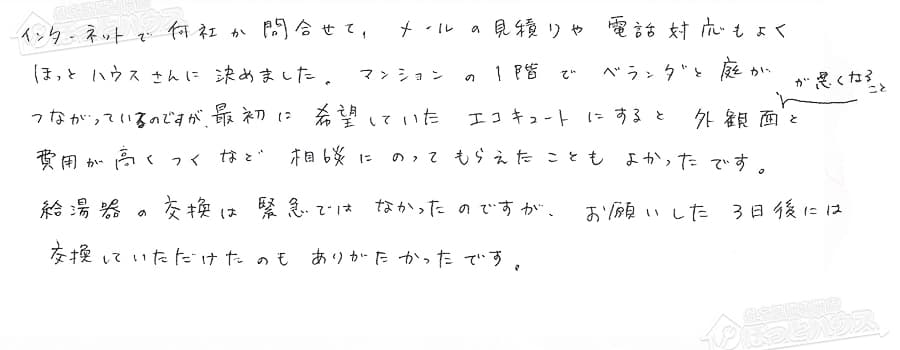 インターネットで何社か問合せて、メールの見積りや電話対応もよく
ほっとハウスさんに決めました。マンションの1階でベランダと庭が
つながっているのですが、最初に希望していたエコキュートにすると外観面が悪くなることと
費用が高くつくなど相談にのってもらえたこともよかったです。
給湯器の交換は緊急ではなかったのですが、お願いした3日後には
交換していただけたのもありがたかったです。
ほっとハウス